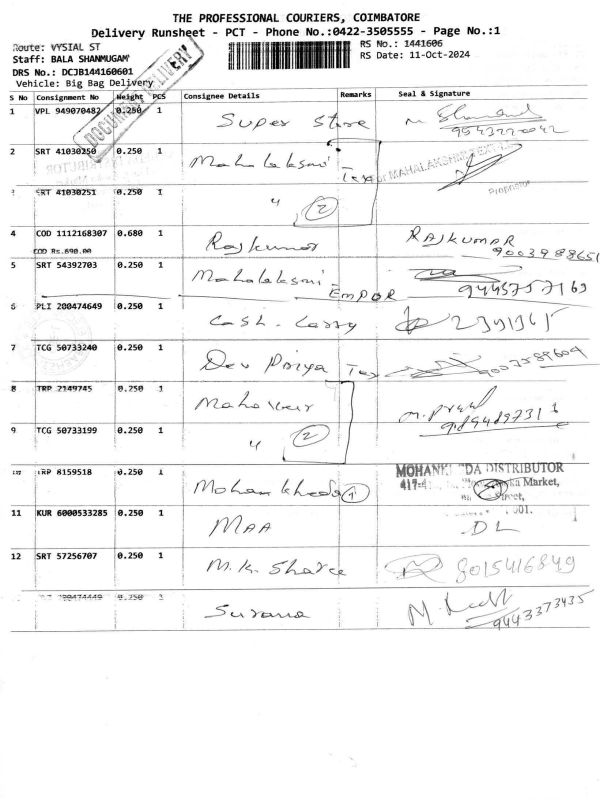 THE PROFESSIONAL COURIERS, COIMBATORE
Delivery Runsheet - PCT - Phone No.:0422-3505555 - Page No.:1
Route: VYSIAL ST
RS No.: 1441606
Staff: BALA SHANMUGAM
RS Date: 11-Oct-2024
DRS No.: DCJB144160601
Vehicle: Big Bag Delivery
DOCUMENT DELIVERY
S No Consignment No Weight PCS Consignee Details Remarks Seal & Signature
1 VPL 949070482 0.250 1 Super Store
2 SRT 41030250 0.250 1 Mahalaksmi Tex for MAHALAKSHMI
Proprietor
SRT 41030251 0.250 1 " 2
4 COD 1112168307 0.680 1 Rajkumar RAJKUMAR
COD Rs.690.00 9003988651
5 SRT 54392703 0.250 1 Mahalaksmi - EMPOR 9445757163
6 PLI 200474649 0.250 1 Cash - Carry 2391365
7 TCG 50733240 0.250 1 Dev Priya Tex 9007589609
8 TRP 2149745 0.250 1
9 TCG 50733199 0.250 1 " 2
TRP 8159518 0.250 1 Mohan Kheda 1 MOHAN DA DISTRIBUTOR
Market,
Street,
001.
11 KUR 6000533285 0.250 1 MAA DL
12 SRT 57256707 0.250 1 M.K. Sharee 8015416849
200474449 0.250 1 Surana 9443373435